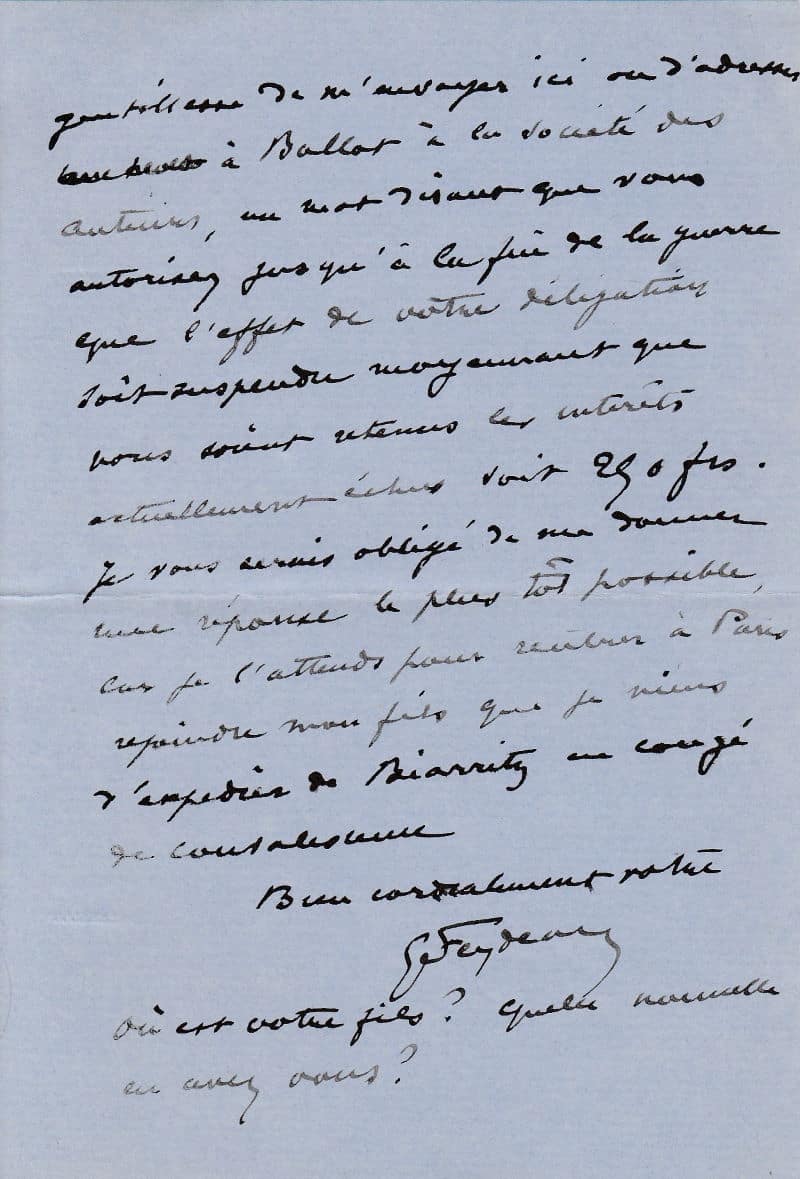 gentillesse de m'envoyer ici ou d'adresser
à Ballot à la société des
auteurs, un mot disant que vous
autorisez jusqu'à la fin de la guerre
que l'effet de votre délégation
soit suspendu moyennant que
vous soient retenus les intérêts
actuellement échus soit 250 frs.
Je vous serais obligé de me donner
une réponse le plus tôt possible,
car je l'attends pour rentrer à Paris
rejoindre mon fils que je viens
d'expédier de Biarritz en congé
de convalescence
Bien cordialement votre
GFeydeau
Où est votre fils? Quelle nouvelle
en avez vous?